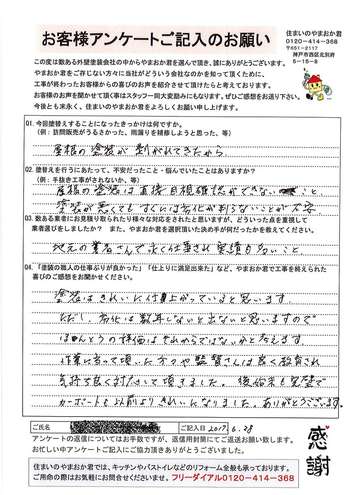 お客様アンケートご記入のお願い
住まいのやまおか君
0120-414-368
〒651-2117
神戸市西区北別府
5-15-8
この度は数ある外壁塗装会社の中からやまおか君を選んで頂き、誠にありがとうございます。
やまおか君をご存じない方々に当社がどういう会社なのかを知って頂くために、
工事が終わったお客様からの喜びのお声を紹介させて頂けたらと考えております。
お客様のお声を聞かせて頂く事はスタッフ一同大変励みになります。ぜひご感想をお送り下さい。
今後とも末永く、住まいのやまおか君をよろしくお願い申し上げます。
Q1. 今回塗替えすることになったきっかけは何ですか。
(例:訪問販売がうるさかった、雨漏りを補修しようと思った、等)
屋根の塗装が剥がれてきたから
Q2. 塗替えを行うにあたって、不安だったこと・悩んでいたことはありますか?
(例:手抜き工事がされないか、等)
屋根の塗装は直接目視確認ができないこと
塗装が悪くてもすぐには劣化が判らないことが不安
Q3. 数ある業者にお見積り取られたり様々な対応をされたと思いますが、どういった点を重視して
業者選びをしましたか? また、やまおか君を選択頂いた決め手が何だったかを教えてください。
地元の業者さんで永く仕事され実績も多いこと
Q4. 「塗装の職人の仕事ぶりが良かった」「仕上りに満足出来た」など、やまおか君で工事を終えられた
喜びのご感想をお聞かせください。
塗装はきれいに仕上がっていると思います
ただし、劣化は数年しないと出ないと思いますので
ほんとうの評価はそれからではないかと考えます。
作業に当って頂いた方々や監督さんは良く教育され
気持ち良く対応して頂きました。後始末も完璧で
カーポートも以前よりきれいになりました。ありがとうございます。
ご氏名
ご記入日 2017. 6. 28
アンケートの返信についてはお手数ですが、返信用封筒にてご返送お願い致します。
お忙しい中アンケートにご協力頂きありがとうございました。
感謝
住まいのやまおか君では、キッチンやバストイレなどのリフォーム全般も承っております。
ご用命の際はお気軽にお問合せくださいませ。フリーダイアル0120-414-368